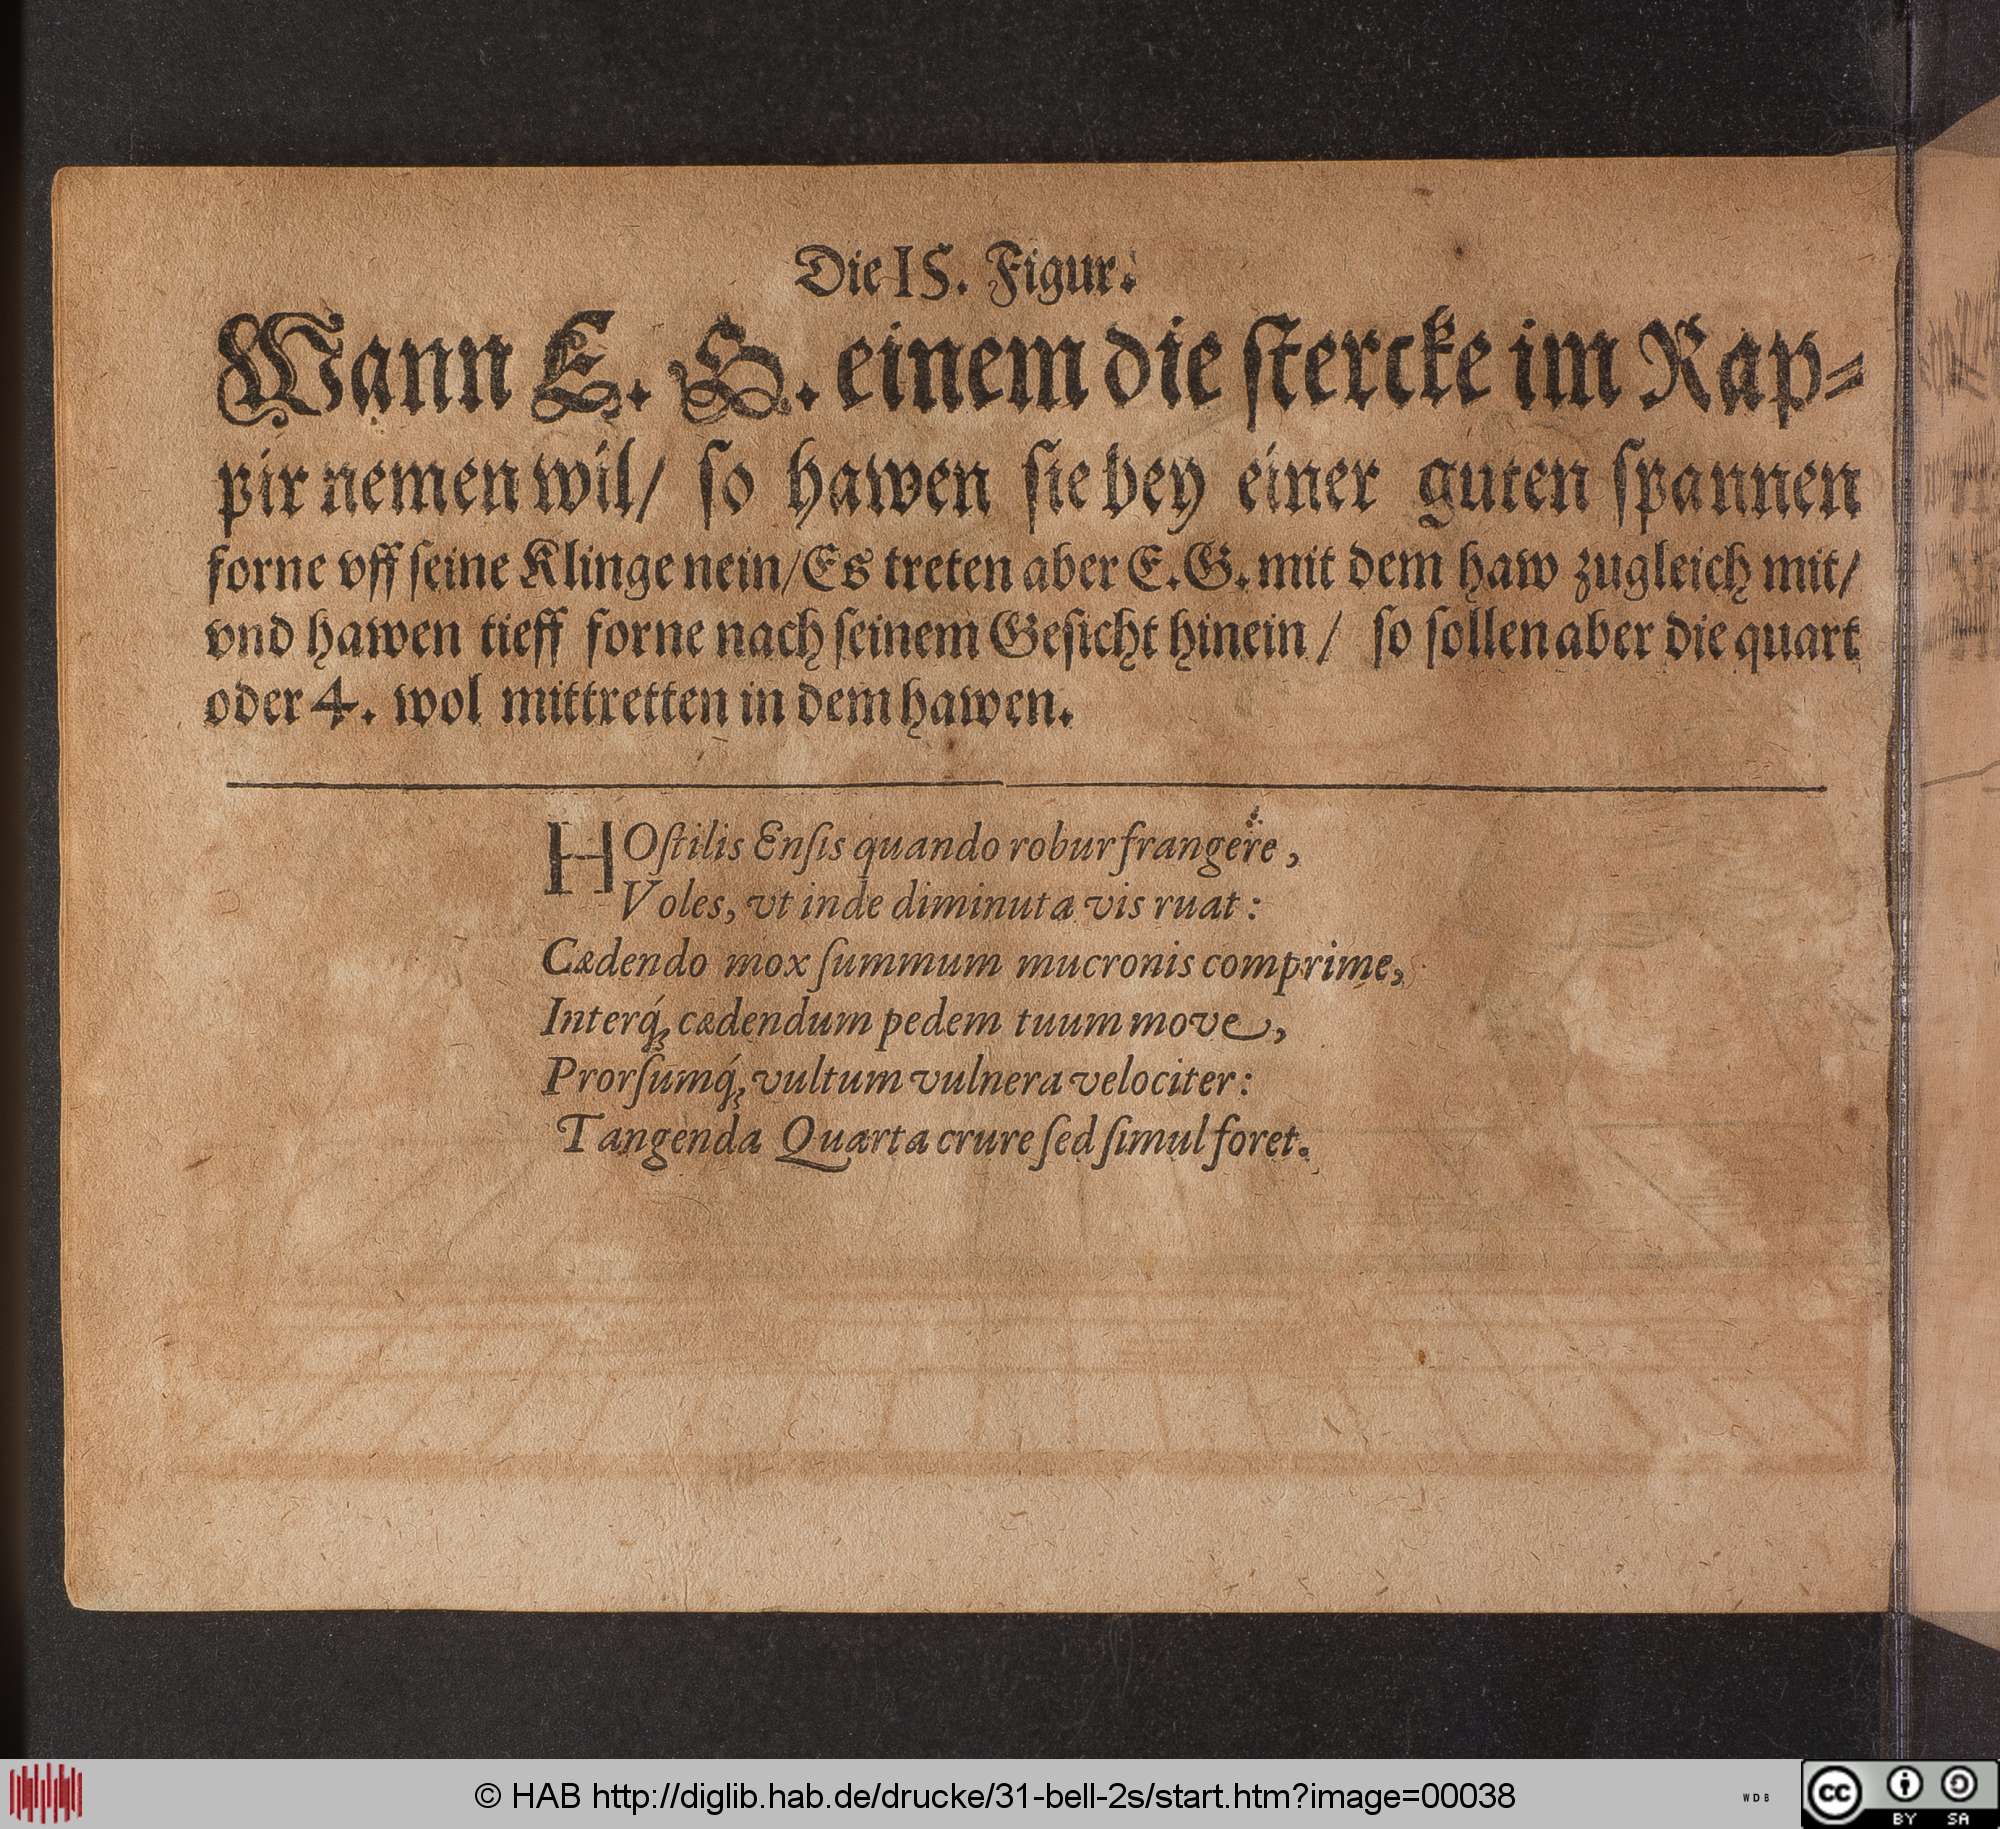 Die 15. Figur.
Wann E. G. einem die ſtercke im Rap⸗
pir nemen wil/ ſo hawen ſie bey einer guten ſpannen
forne vff ſeine Klinge nein/Es treten aber E.G. mit dem haw zugleich mit/
vnd hawen tieff forne nach ſeinem Geſicht hinein / ſo ſollen aber die quart
oder 4. wol mittretten in dem hawen.
HOſtilis Enſis quando robur frangere,
Voles, vt inde diminuta vis ruat:
Cædendo mox ſummum mucronis comprime,
Interq́; cædendum pedem tuum move,
Prorſumq́; vultum vulnera velociter:
Tangenda Quarta crure ſed ſimul foret.
© HAB http://diglib.hab.de/drucke/31-bell-2s/start.htm?image=00038
WDB
cc BY SA